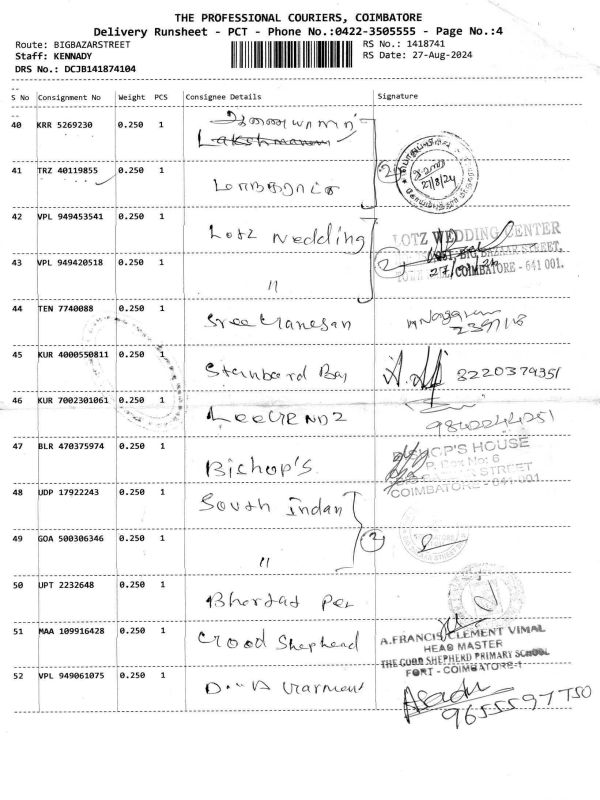 THE PROFESSIONAL COURIERS, COIMBATORE
Delivery Runsheet - PCT - Phone No.:0422-3505555 - Page No.:4
Route: BIGBAZARSTREET
RS No.: 1418741
Staff: KENNADY
RS Date: 27-Aug-2024
DRS No.: DCJB141874104
S No Consignment No Weight PCS Consignee Details Signature
40 KRR 5269230 0.250 1
Lakshmanan
27/8/24
41 TRZ 40119855 0.250 1
2
42 VPL 949453541 0.250 1 Lotz Wedding
LOTZ WEDDING CENTER
BIG BAZAAR STREET,
COIMBATORE - 641 001.
43 VPL 949420518 0.250 1 "
2
44 TEN 7740088 0.250 1 Sree Ganesan
45 KUR 4000550811 0.250 1
8220379351
46 KUR 7002301061 0.250 1
9842244251
47 BLR 470375974 0.250 1 Bishop's
BISHOP'S HOUSE
P. Box No: 6
STREET
COIMBATORE - 641 001
48 UDP 17922243 0.250 1 South Indan
49 GOA 500306346 0.250 1 "
2
50 UPT 2232648 0.250 1
51 MAA 109916428 0.250 1 Good Shephend
A.FRANCIS CLEMENT VIMAL
HEAD MASTER
THE GOOD SHEPHERD PRIMARY SCHOOL
FORT - COIMBATORE-1
52 VPL 949061075 0.250 1
9655597750